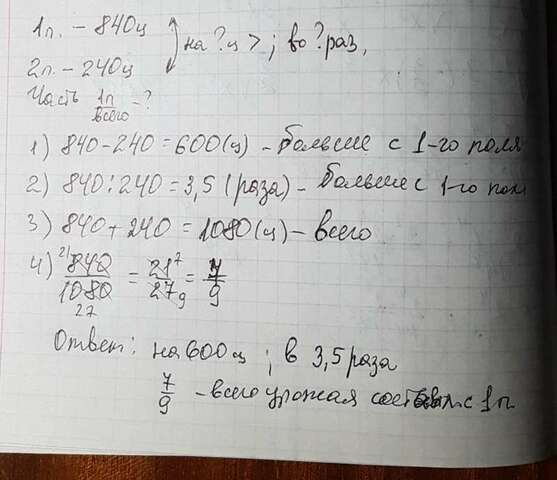 1п. – 840ц
на ?ц > ; во ? раз,
2п. – 240ц
Часть 1п/всего = ?
1) 840 – 240 = 600(ц) – больше с 1-го поля
2) 840 : 240 = 3,5 (раза) – больше с 1-го пол
3) 840 + 240 = 1080(ц) – всего
4) 840/1080 = 21/27 = 7/9
21 27 7 9
Ответ: на 600ц ; в 3,5 раза
7/9 – всего урожая с 1п